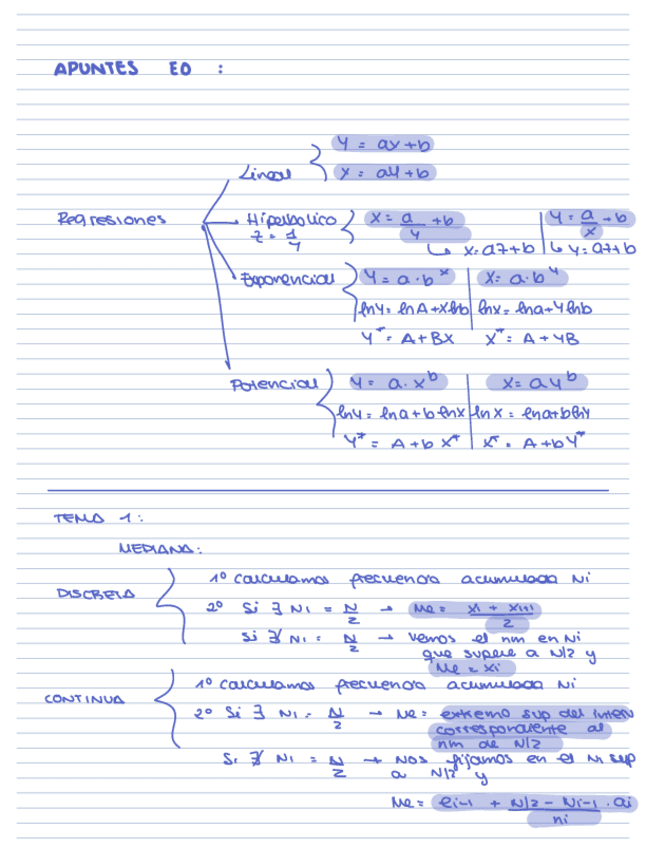 APUNTES EO :
Y = ax+b
Lineal
X = aY+b
Regresiones
Hiperbolico X = a/Y +b | Y = a/x +b
Z = 1/Y
↳ X=aZ+b | ↳ Y=aZ+b
Exponencial Y = a·b^x | X = a·b^Y
lnY = lnA+Xlnb | lnx = lna+Ylnb
Y* = A+BX X* = A+YB
Potencial Y = a·x^b | X = aY^b
lnY = lna+b·lnX | lnX = lna+blnY
Y* = A+bX* | X* = A+bY*
TEMA 1:
MEDIANA:
DISCRETA
1º calculamos frecuencia acumulada Ni
2º Si ∃ Ni = N/2 → Me = xi + xi+1 / 2
Si ∄ Ni = N/2 → vemos el nm en Ni
que supere a N/2 y
Me = xi
CONTINUA
1º calculamos frecuencia acumulada Ni
2º Si ∃ Ni = N/2 → Me = extremo sup del interv
correspondiente al
nm de N/2
Si ∄ Ni = N/2 → Nos fijamos en el Ni sup
a N/2 y
Me = ei-1 + N/2 - Ni-1 / ni · ai